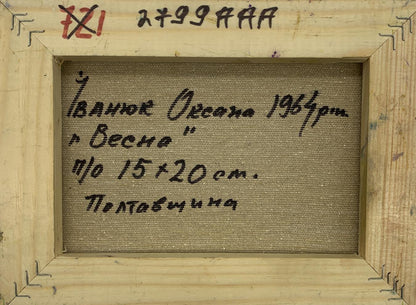 721 2799AAA
Іванюк Оксана 1964рн
"Весна"
п/о 15х20 см.
Полтавщина